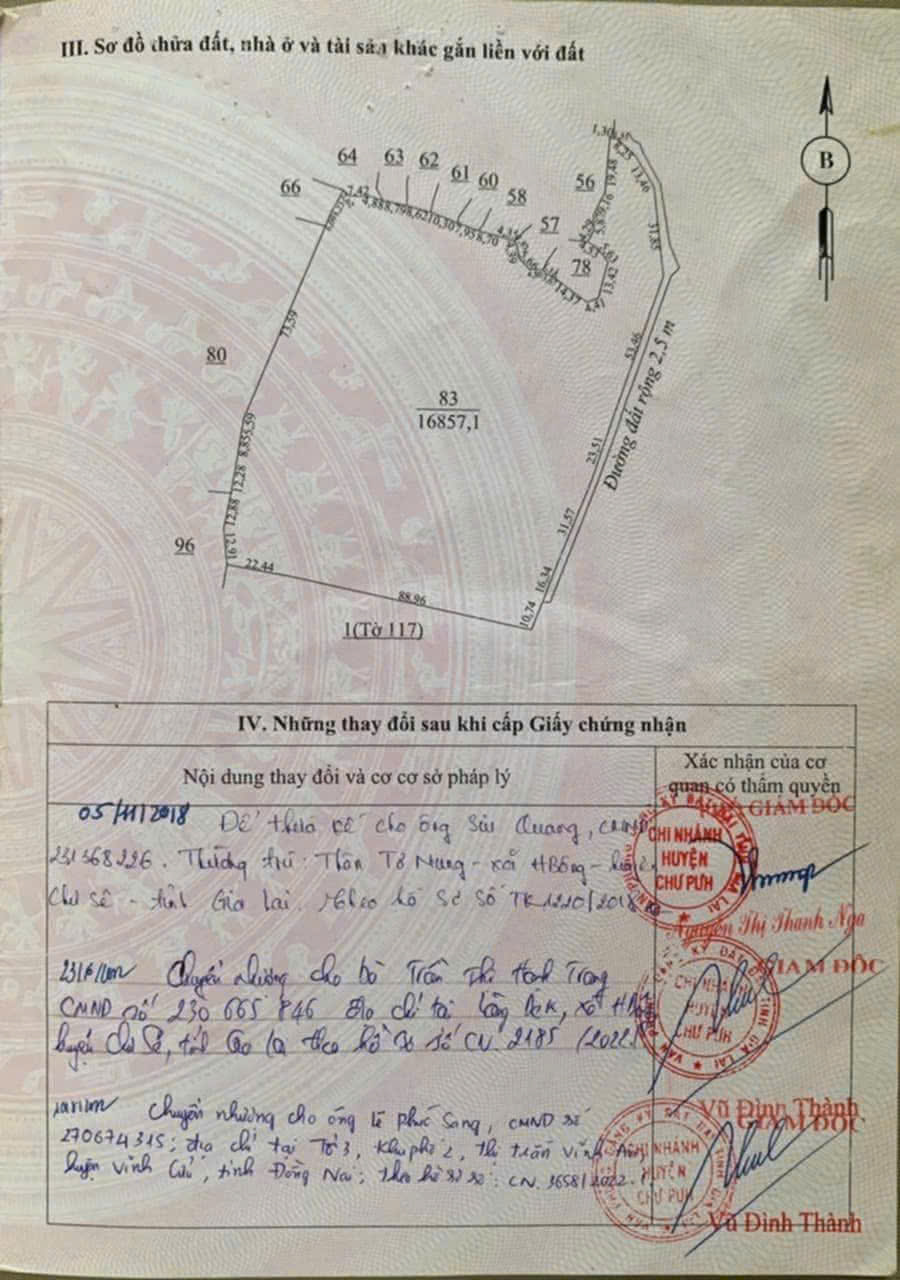 III. Sơ đồ thửa đất, nhà ở và tài sản khác gắn liền với đất
B
64
63
62
61
60
58
57
56
66
78
80
96
7,42
4,88
8,79
8,62
10,50
7,95
8,70
4,35
14,37
13,42
5,63
4,37
9,16
19,48
1,30
8,25
13,46
31,85
53,46
23,51
31,57
16,34
10,74
88,96
22,44
12,91
12,88
12,28
73,59
Đường đất rộng 2,5 m
83
16857,1
1(Tờ 117)
IV. Những thay đổi sau khi cấp Giấy chứng nhận
Nội dung thay đổi và cơ cơ sở pháp lý
Xác nhận của cơ
quan có thẩm quyền
05/11/2018 Để thừa kế cho ông Siu Quang, CMND
231368226. Thường trú: Thôn Tơ Nung - xã HBông - huyện
Chư Sê - tỉnh Gia Lai. Theo hồ sơ số TK 1210/2018
GIÁM ĐỐC
CHI NHÁNH
HUYỆN
CHƯ PƯH
Nguyễn Thị Thanh Nga
Chuyển nhượng cho bà Trần Thị Hạnh Trang
CMND số 230 665 846 địa chỉ tại làng xã HBông
huyện Chư Sê, tỉnh Gia Lai theo hồ sơ số CN. 2185 /2022
GIÁM ĐỐC
CHI NHÁNH
HUYỆN
CHƯ PƯH
Vũ Đình Thành
Chuyển nhượng cho ông Lê Phúc Sang, CMND số
270674315; địa chỉ tại Tổ 3, Khu phố 2, thị trấn Vĩnh An
huyện Vĩnh Cửu, tỉnh Đồng Nai; theo hồ sơ số: CN. 3658/2022.
GIÁM ĐỐC
CHI NHÁNH
HUYỆN
CHƯ PƯH
Vũ Đình Thành